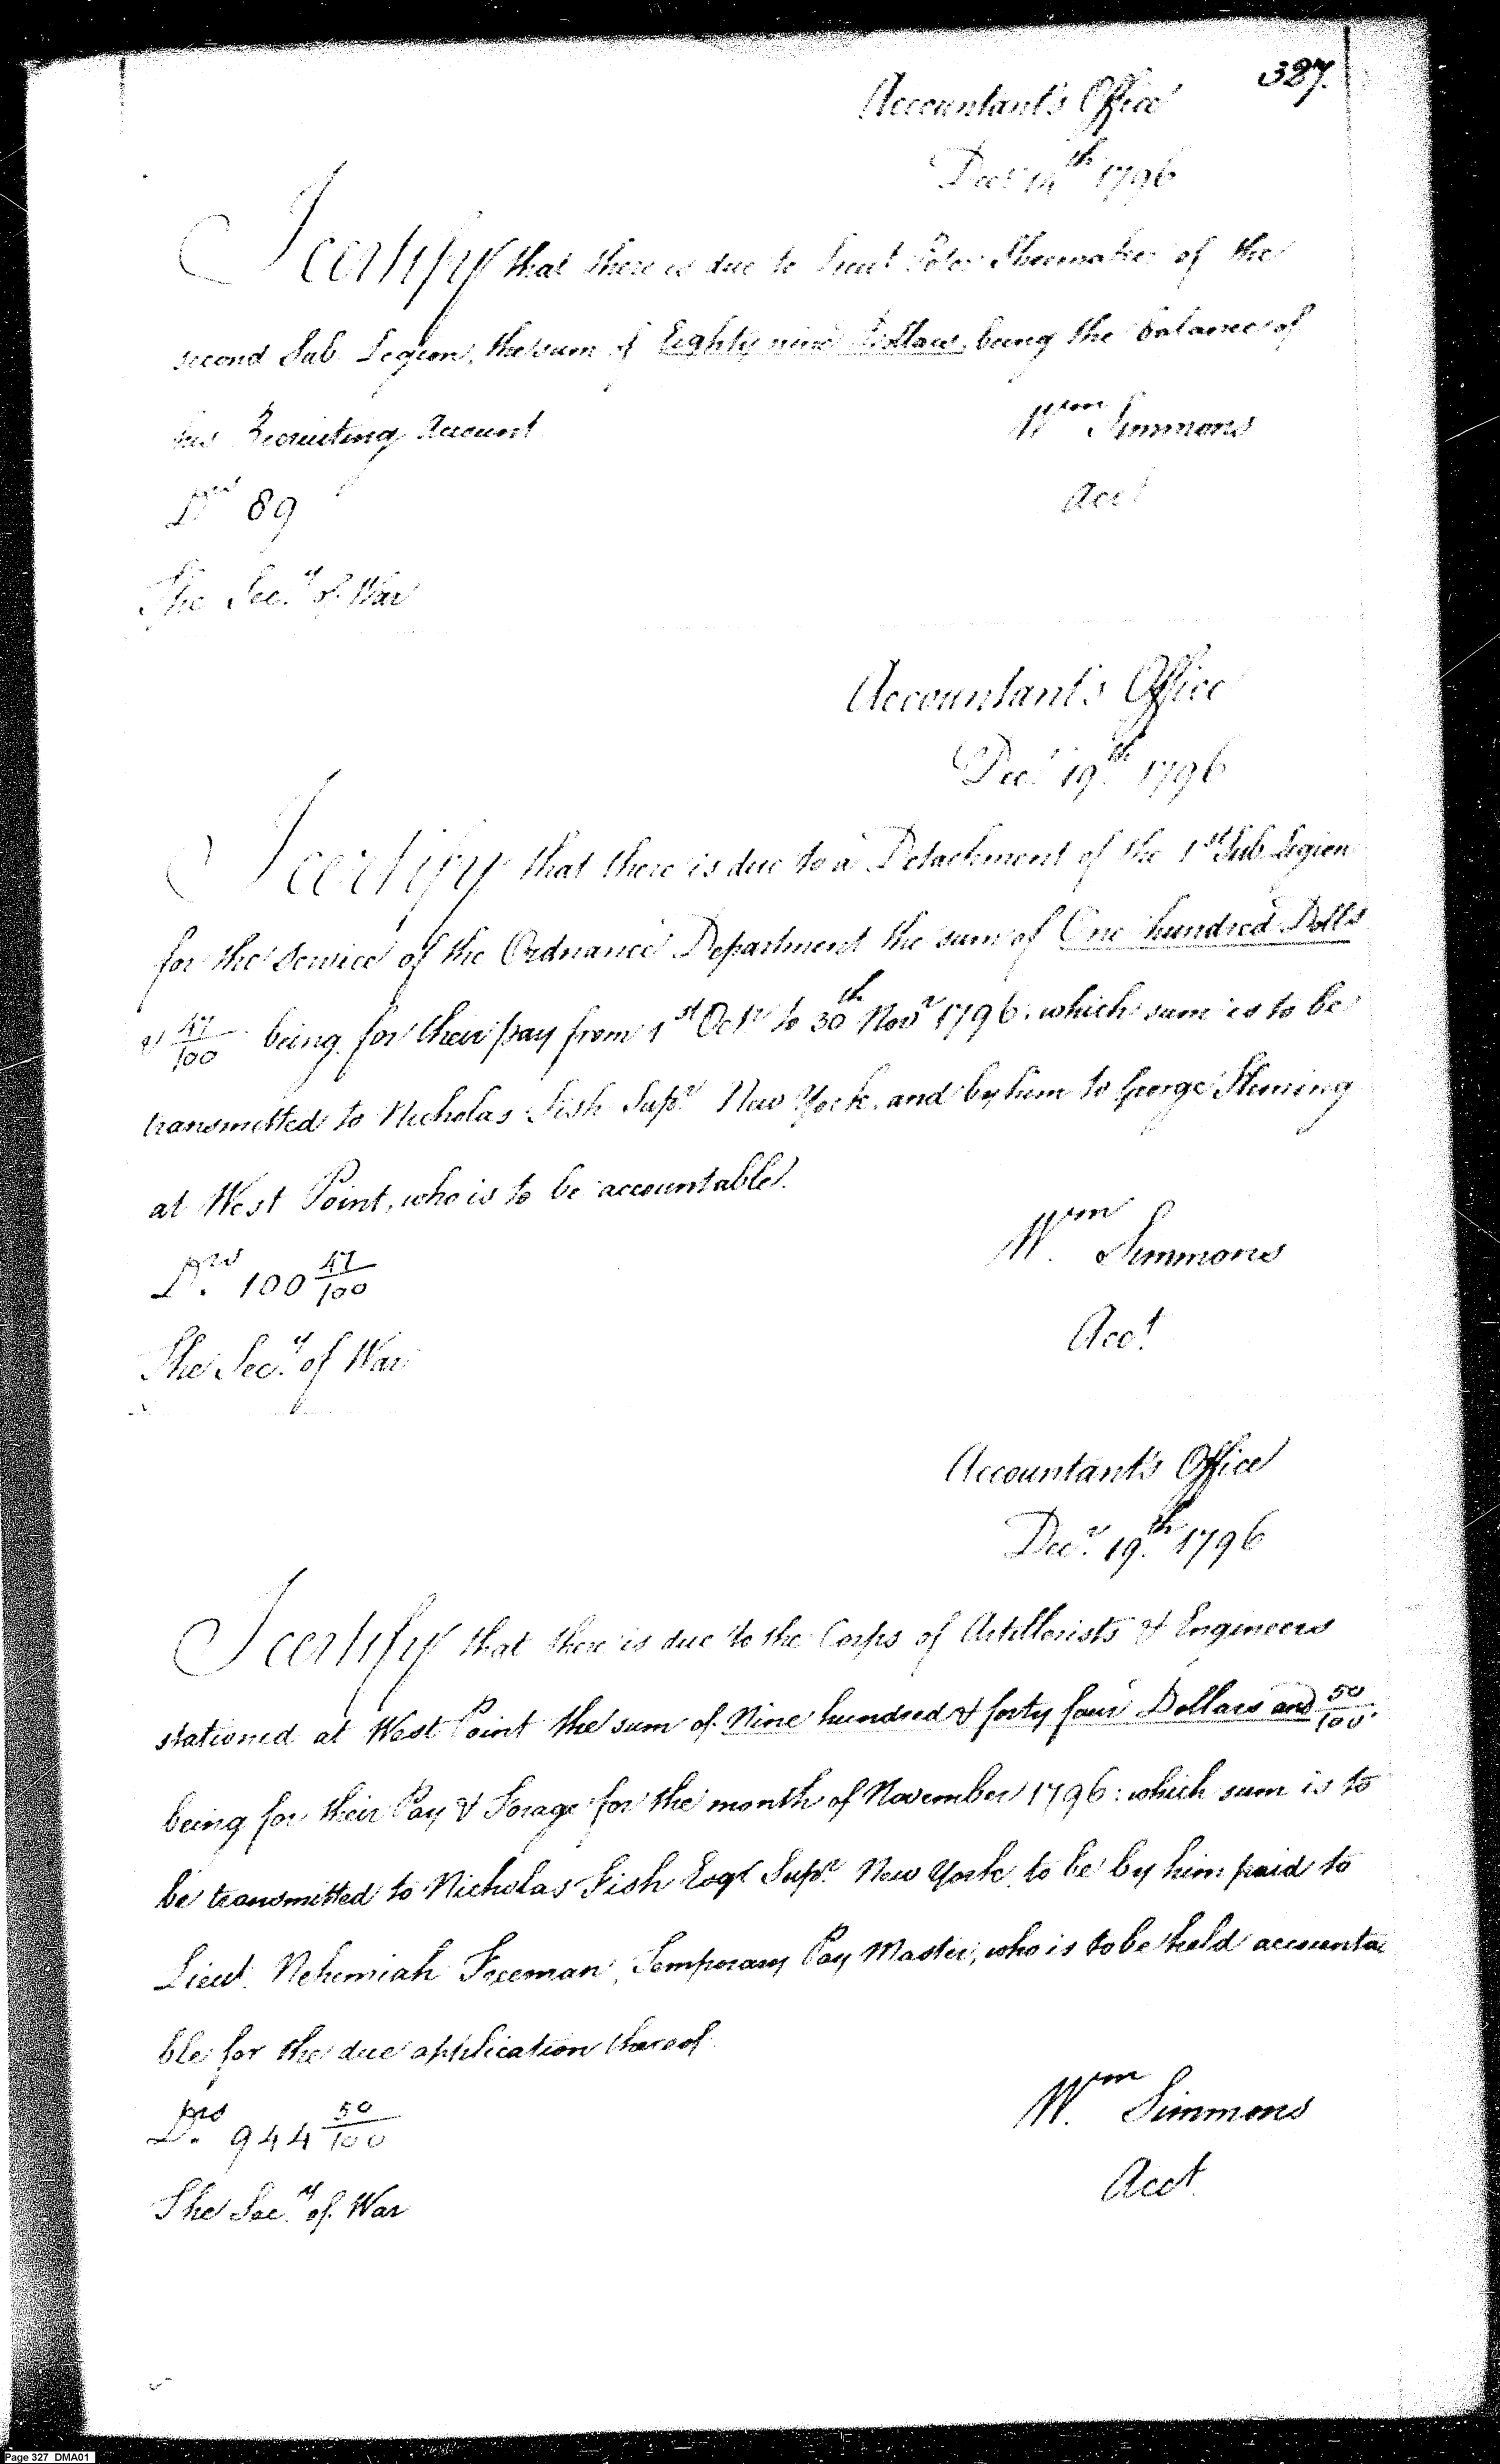 327.
Accountant's Office
Decr 14th 1796
I certify that there is due to Lieut Peter Shoemaker of the
second Sub Legion, the sum of Eighty nine Dollars, being the balance of
his Recruiting Account
Wm Simmons
Drs 89
Acct
The Secy of War
Accountant's Office
Decr 19th 1796
I certify that there is due to a Detachment of the 1st Sub Legion
for the Service of the Ordnance Department the sum of One hundred Dolls
& 47/100 being for their pay from 1st Octr to 30th Novr 1796: which sum is to be
transmitted to Nicholas Fish Supr New York, and by him to George Fleming
at West Point, who is to be accountable.
Wm Simmons
Drs. 100 47/100
Acct
The Secy of War
Accountant's Office
Decr 19th 1796
I certify that there is due to the Corps of Artillerists & Engineers
stationed at West Point the sum of Nine hundred & forty four Dollars and 50/100.
being for their Pay & Forage for the month of November 1796: which sum is to
be transmitted to Nicholas Fish Esqr Supr New York, to be by him paid to
Lieut. Nehemiah Freeman, Temporary Pay Master, who is to be held accounta
ble for the due application thereof.
Wm Simmons
Drs. 944 50/100
Acct.
The Secy of War
Page 327 DMA01